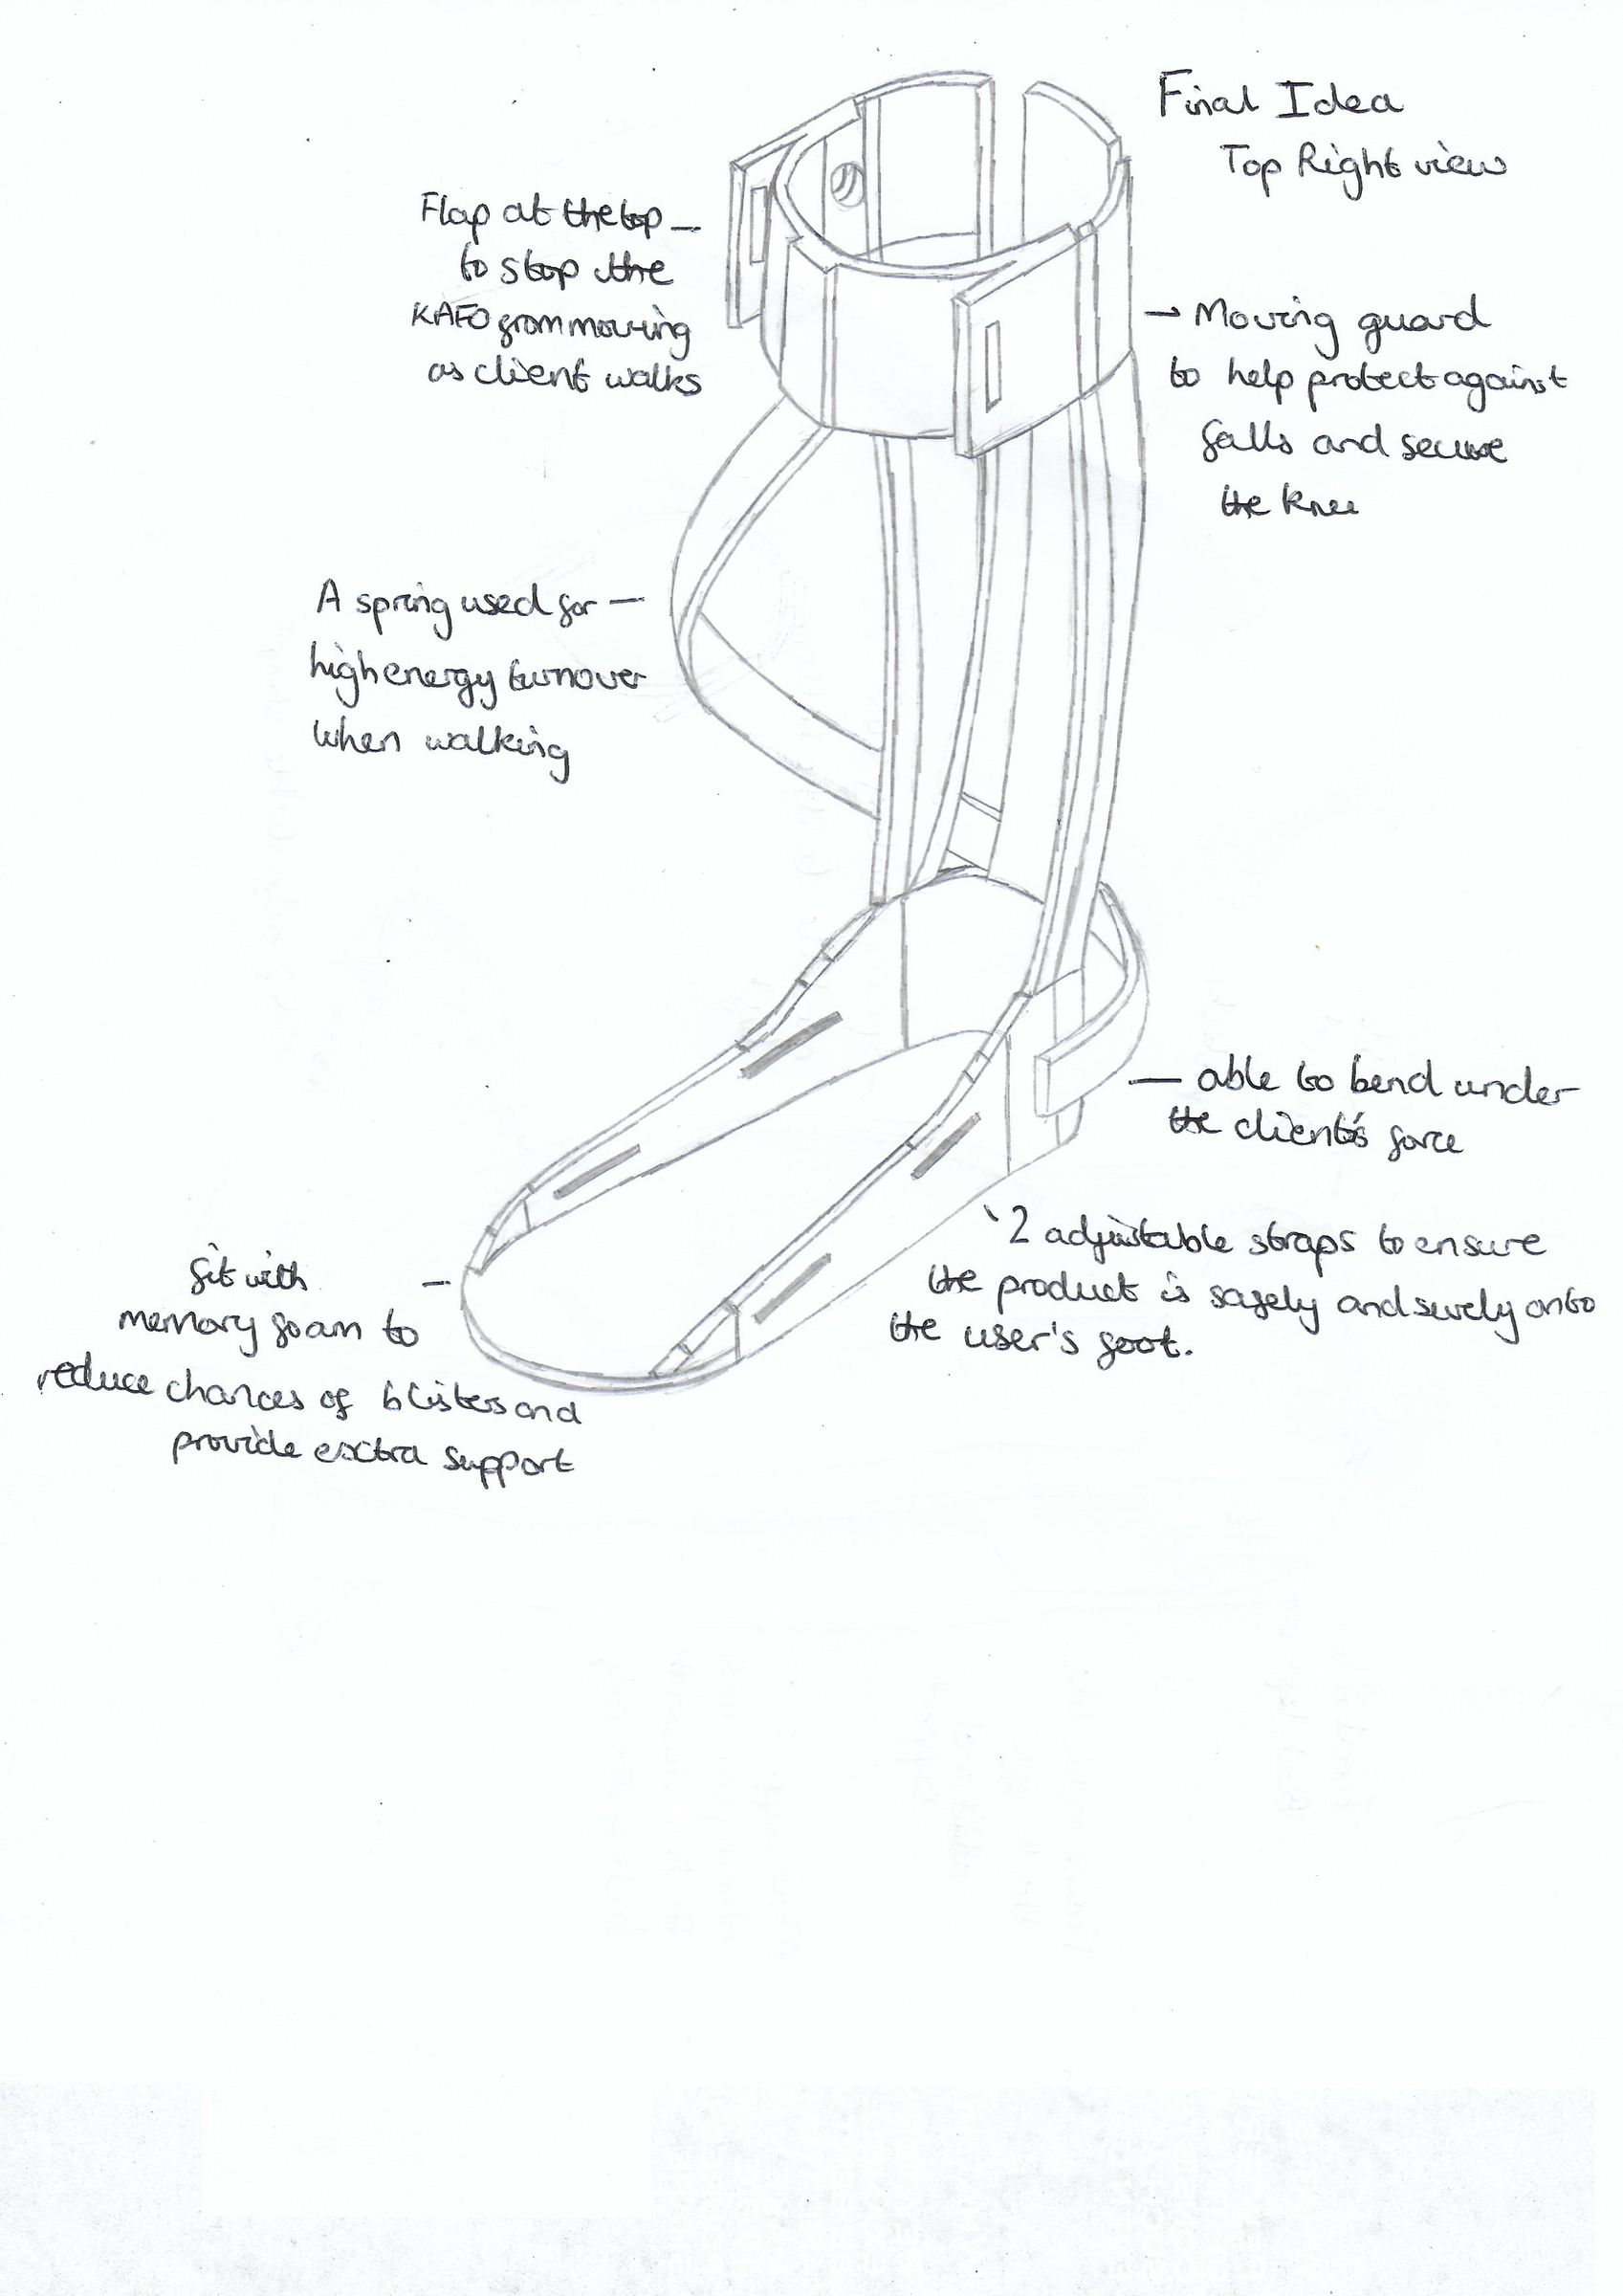 Final Idea
Top Right view
Flap at the top
to stop the
KAFO from moving
as client walks
Moving guard
to help protect against
falls and secure
the knee
A spring used for
high energy turnover
when walking
able to bend under
the client's force
2 adjustable straps to ensure
the product is safely and surely onto
the user's foot.
fit with
memory foam to
reduce chances of blisters and
provide extra support